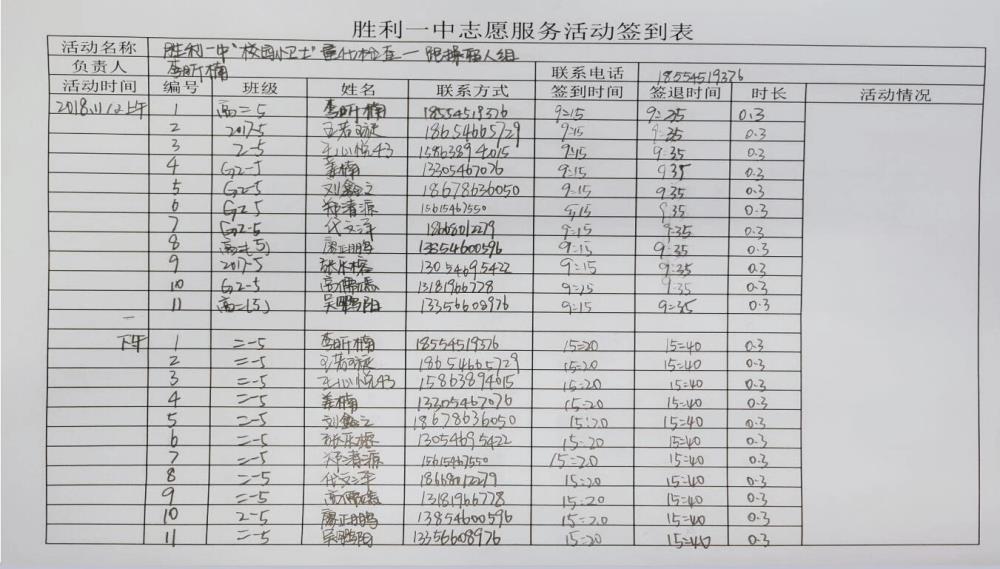 胜利一中志愿服务活动签到表
活动名称 胜利一中"校园小卫士" 检查一跟操 人组
负责人 李昕楠 联系电话 18554519376
活动时间 编号 班级 姓名 联系方式 签到时间 签退时间 时长 活动情况
2018.11/2上午 1 高二5 李昕楠 18554519376 9=15 9=35 0.3
2 2017-5 王若 18654665729 9=15 9=35 0.3
3 2-5 王心悦43 15863894015 9=15 9=35 0.3
4 G2-5 姜楠 13305467076 9=15 9.35 0.3
5 G2-5 刘鑫 18678636050 9=15 9.35 0.3
6 G2-5 郑清源 15615467550 9=15 9.35 0.3
7 G2-5 代文泽 18668012279 9=15 9=35 0.3
8 高二(5) 廖正鹏 13854600596 9=15 9=35 0.3
9 2017-5 张乐榕 13054695422 9=15 9=35 0.3
10 G2-5 高 13181966778 9=15 9=35 0.3
11 高二(5) 吴鹏阳 13356608976 9=15 9=35 0.3
一
下午 1 二-5 李昕楠 18554519376 15=20 15=40 0.3
2 二-5 王若 18654665729 15=20 15=40 0.3
3 二-5 王心悦43 15863894015 15=20 15=40 0.3
4 二-5 姜楠 13305467076 15=20 15=40 0.3
5 二-5 刘鑫 18678636050 15=20 15=40 0.3
6 二-5 张乐榕 13054695422 15=20 15=40 0.3
7 二-5 郑清源 15615467550 15=20 15=40 0.3
8 二-5 代文泽 18668012279 15=20 15=40 0.3
9 二-5 高 13181966778 15=20 15=40 0.3
10 2-5 廖正鹏 13854600596 15=20 15=40 0.3
11 二-5 吴鹏阳 13356608976 15=20 15=40 0.3